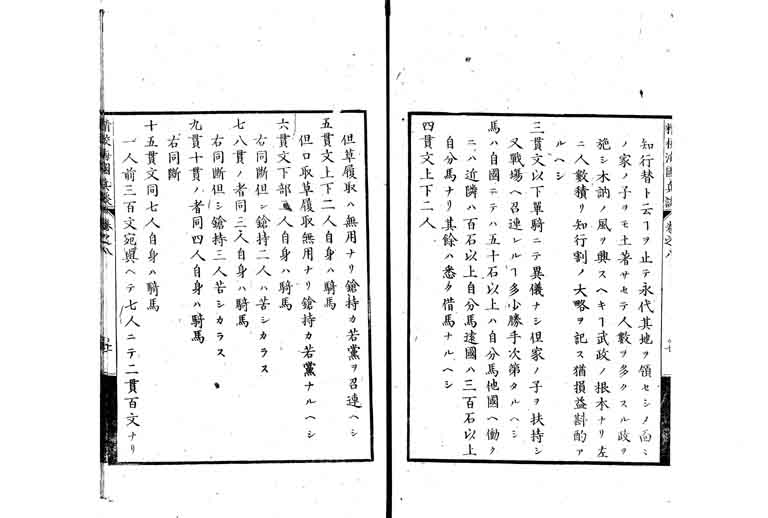 精校海國兵談 卷之八
知行替ト云ヿヲ止テ永代其地ヲ領セシノ面ミ
ノ家ノ子ヲモ土著サセテ人數ヲ多クスル政ヲ
施シ木訥ノ風ヲ興スヘキヿ武政ノ根本ナリ左
ニ人數積リ知行割ノ大略ヲ記ス猶損益斟酌ア
ルヘシ
三貫文以下單騎ニテ異儀ナシ但家ノ子ヲ扶持シ
又戰場ヘ召連レルヿ多少勝手次第タルヘシ
馬ハ自國ニテハ五十石以上ハ自分馬他國ヘ働ク
ニハ近隣ハ百石以上自分馬遠國ハ三百石以上
自分馬ナリ其餘ハ悉ク借馬ナルヘシ
四貫文上下二人
但草履取ハ無用ナリ鎗持カ若黨ヲ召連ヘシ
五貫文上下二人自身ハ騎馬
但口取草履取無用ナリ鎗持カ若黨ナルヘシ
六貫文下部二人自身ハ騎馬
右同斷但シ鎗持二人ハ苦シカラス
七八貫ノ者同三人自身ハ騎馬
右同斷但シ鎗持三人苦シカラス
九貫十貫ノ者同四人自身ハ騎馬
右同斷
十五貫文同七人自身ハ騎馬
一人前三百文宛與ヘテ七人ニテ二貫百文ナリ
精校海國兵談 卷之八